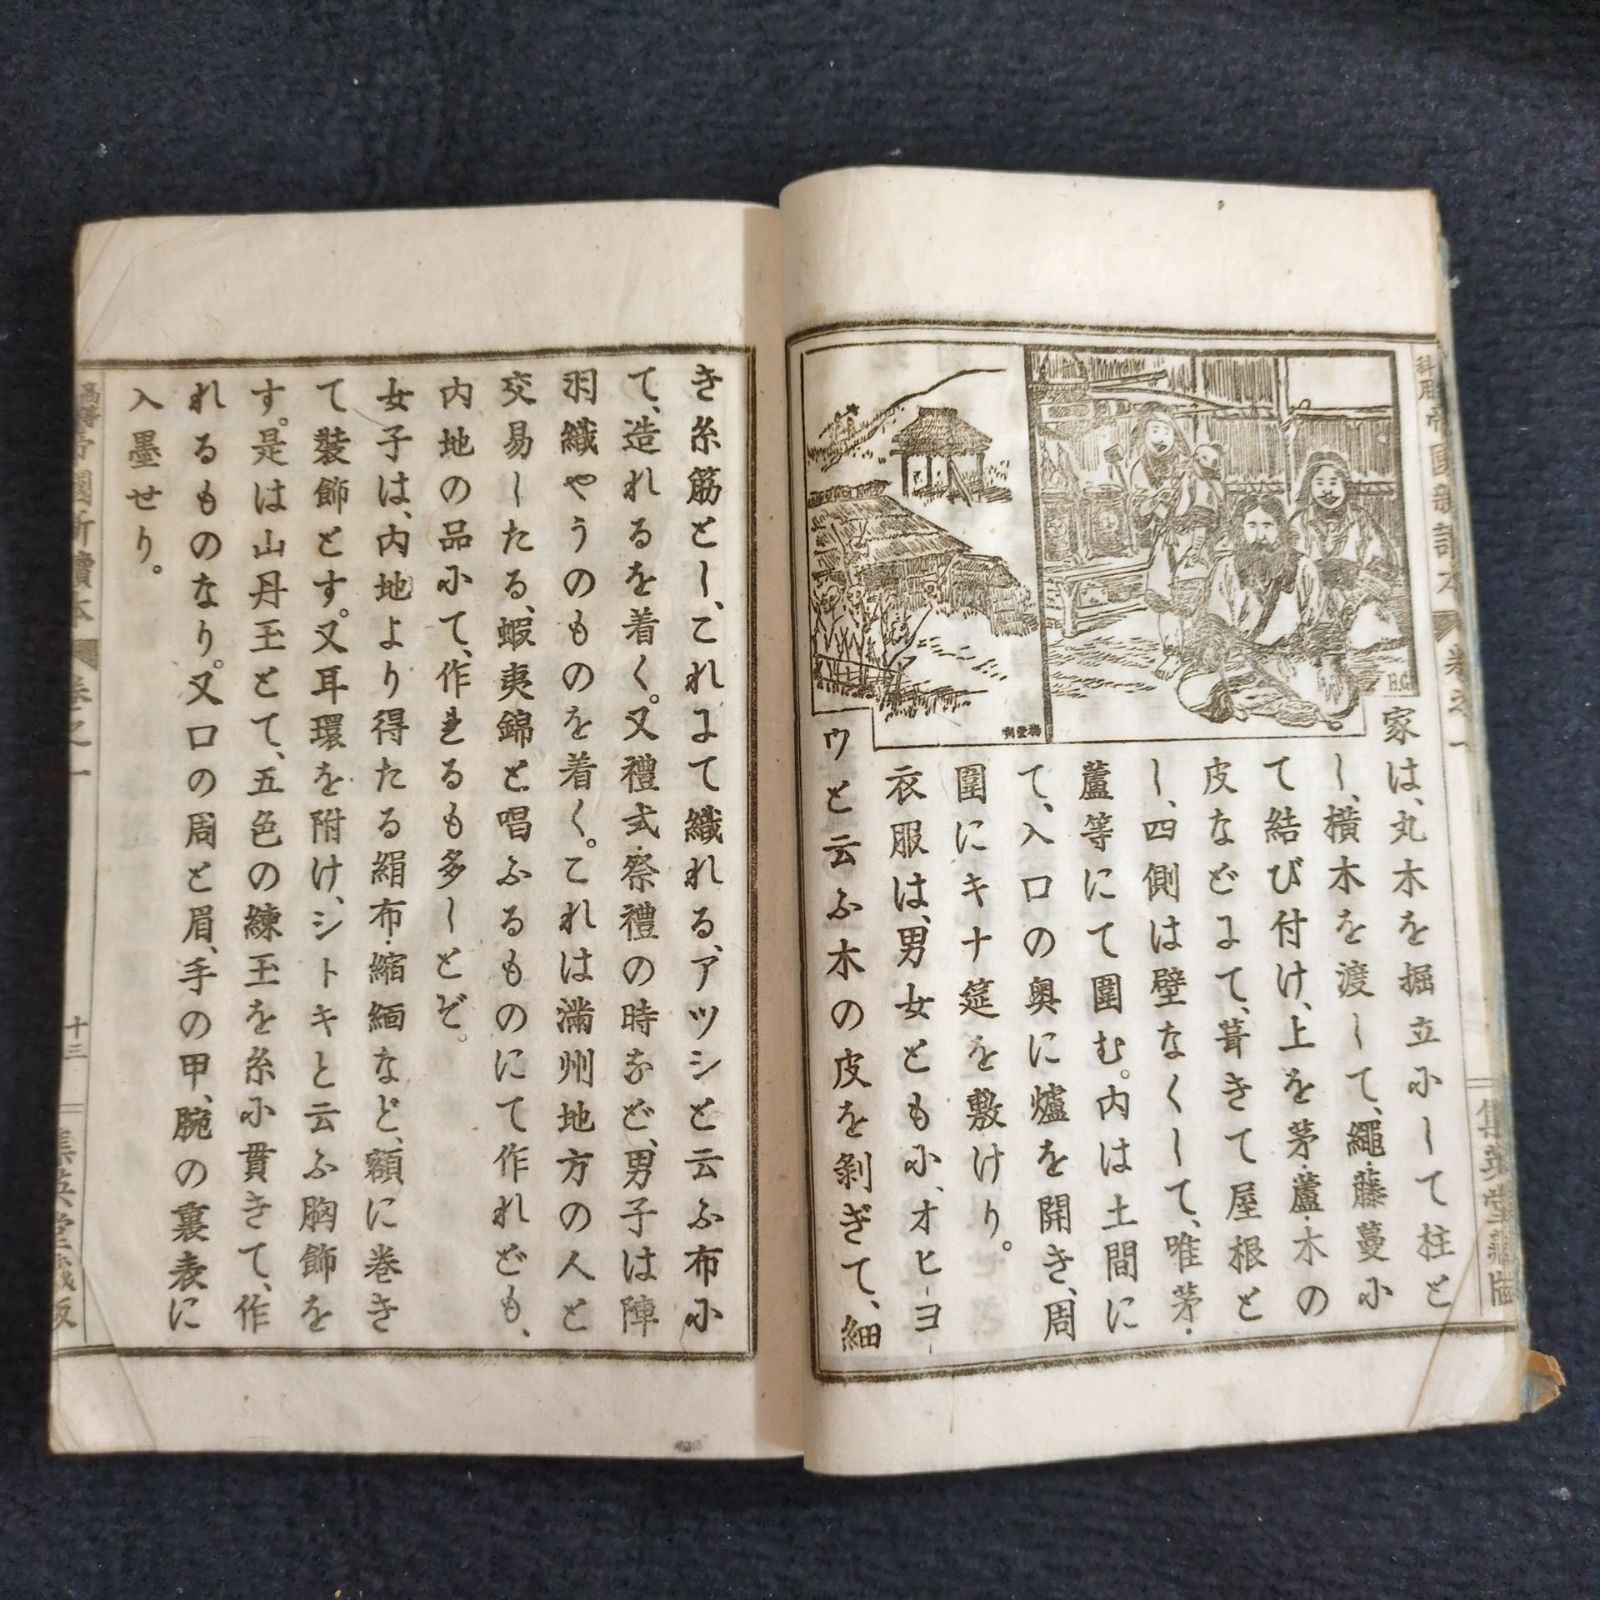 科用 帝國新讀本 卷之一
集英堂藏版
家は、丸木を掘立にして柱と
し、橫木を渡して、繩・藤蔓に
て結び付け、上を茅・蘆・木の
皮などにて、葺きて屋根と
し、四側は壁なくして、唯茅・
蘆等にて圍む。内は土間に
て、入口の奥に爐を開き、周
圍にキナ筵を敷けり。
衣服は、男女とも に、オヒヨ
ウと云ふ木の皮を剝ぎて、細
H.G.
き糸筋とし、これにて織れる、アツシと云ふ布に
て、造れるを着く。又禮式・祭禮の時など、男子は陣
羽織やうのものを着く。これは滿州地方の人と
交易したる、蝦夷錦と唱ふるものにて作れども、
内地の品にて、作れるも多しとぞ。
女子は、内地より得たる絹布・縮緬など、額に巻き
て裝飾とす。又耳環を附け、シトキと云ふ胸飾を
す。是は山丹玉とて、五色の練玉を糸に貫きて、作
れるものなり。又口の周と眉、手の甲、腕の裏表に
入墨せり。
高等 帝國新讀本 卷之一
十三
集英堂藏版